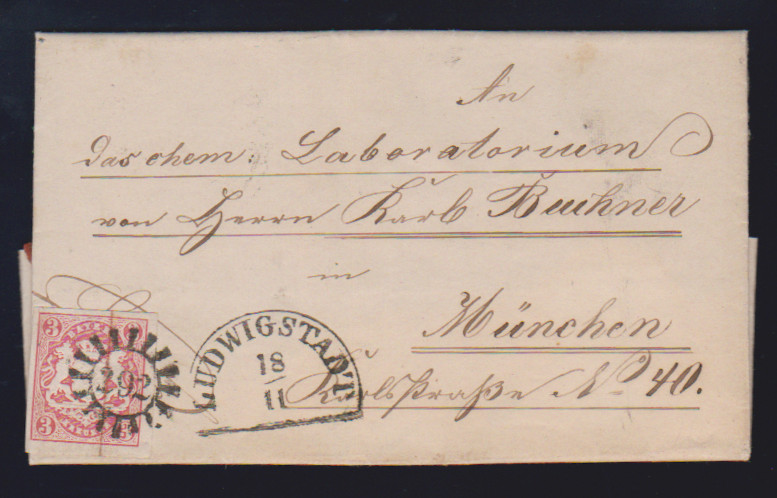 An
das chem: Laboratorium
von Herrn Karl Buchner
in
München
Karlsstraße No 40.
LUDWIGSTADT
18
11
3 3
292
3 3